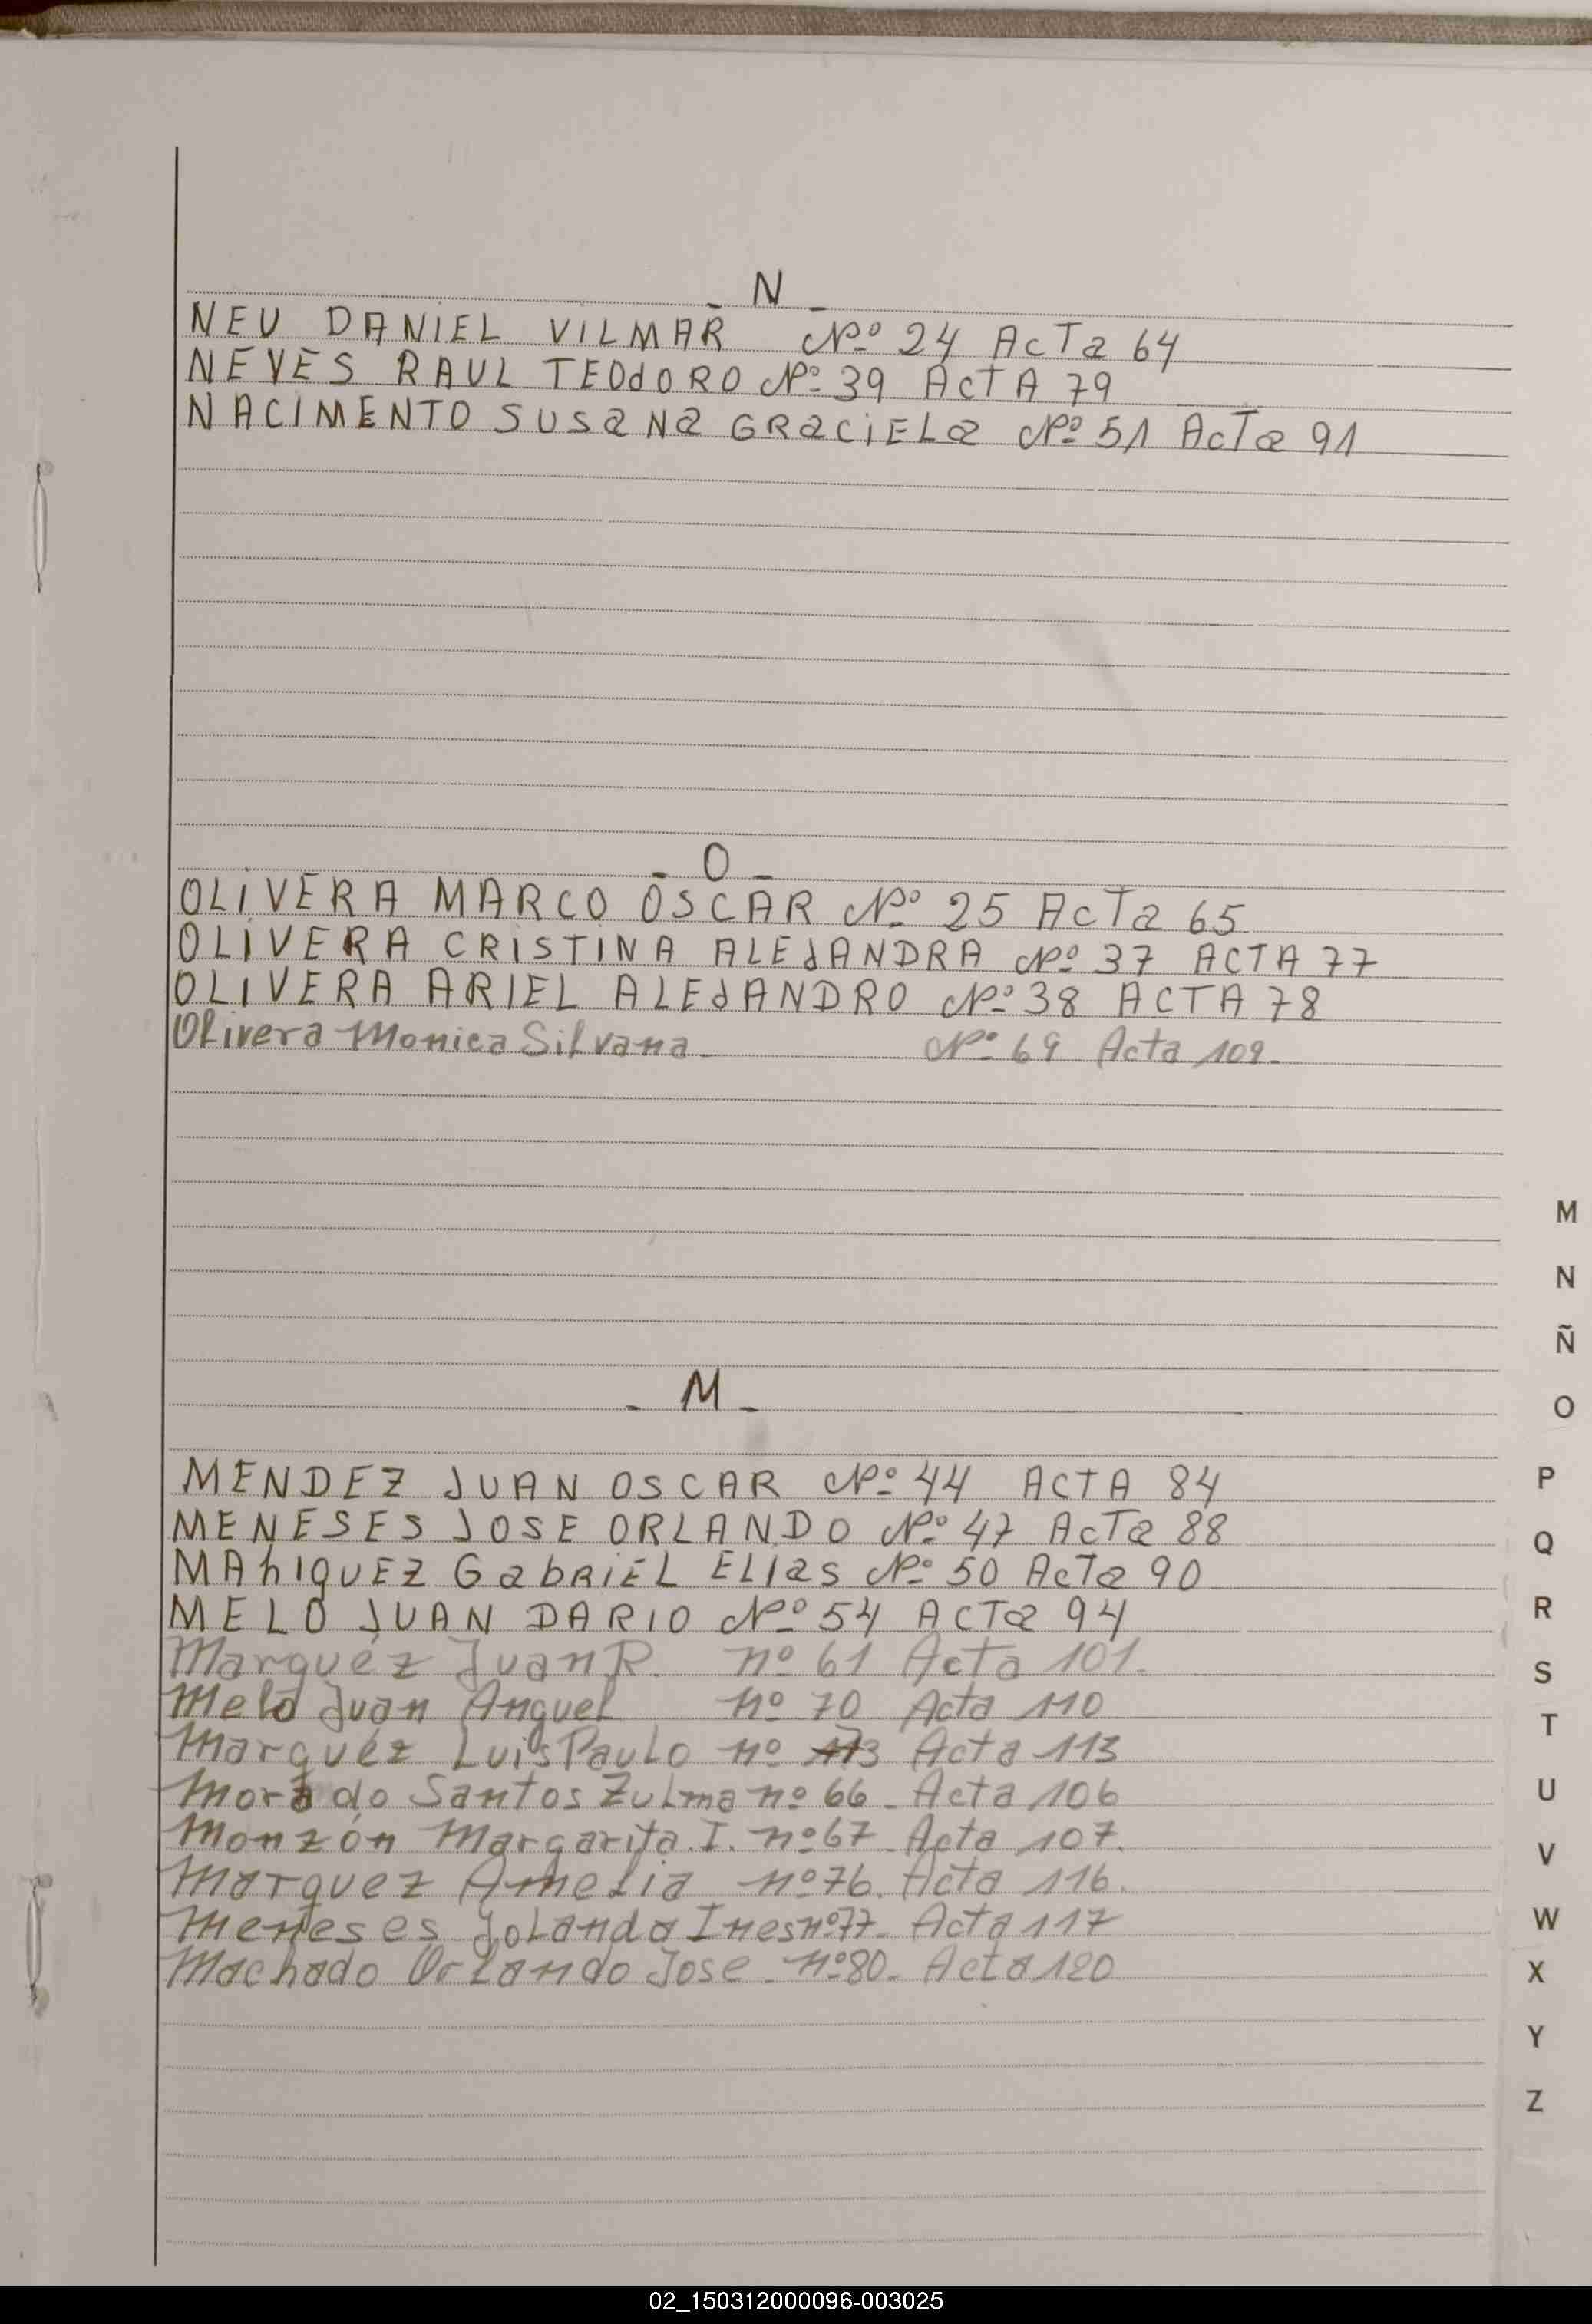 - N -
NEU DANIEL VILMAR Nº 24 ACTa 64
NEVES RAUL TEOdORO Nº 39 ACTA 79
NACIMENTO SUSaNa GRaCiELa Nº 51 ACTa 91
- O -
OLiVERA MARCO OSCAR Nº 25 ACTa 65
OLIVERA CRISTINA ALEJANDRA Nº 37 ACTA 77
OLIVERA ARIEL ALEJANDRO Nº 38 ACTA 78
Olivera Monica Silvana - Nº 69 Acta 109-
- M -
MENDEZ JUAN OSCAR Nº 44 ACTA 84
MENESES JOSE ORLANDO Nº 47 ACTa 88
MAhIQUEZ GabRiEL ELIas Nº 50 ACTa 90
MELO JUAN DARIO Nº 54 ACTa 94
Marquéz Juan R. nº 61 Acta 101.
Melo Juan Anguel nº 70 Acta 110
Marquéz Luis Paulo nº 73 Acta 113
do Santos Zulma nº 66 - Acta 106
Monzón Margarita I. nº 67 Acta 107.
Marquez Amelia nº 76. Acta 116.
Meneses Jolanda Ines nº 77- Acta 117
Machado Orlando Jose - nº 80- Acta 120
M
N
Ñ
O
P
Q
R
S
T
U
V
W
X
Y
Z
02_150312000096-003025